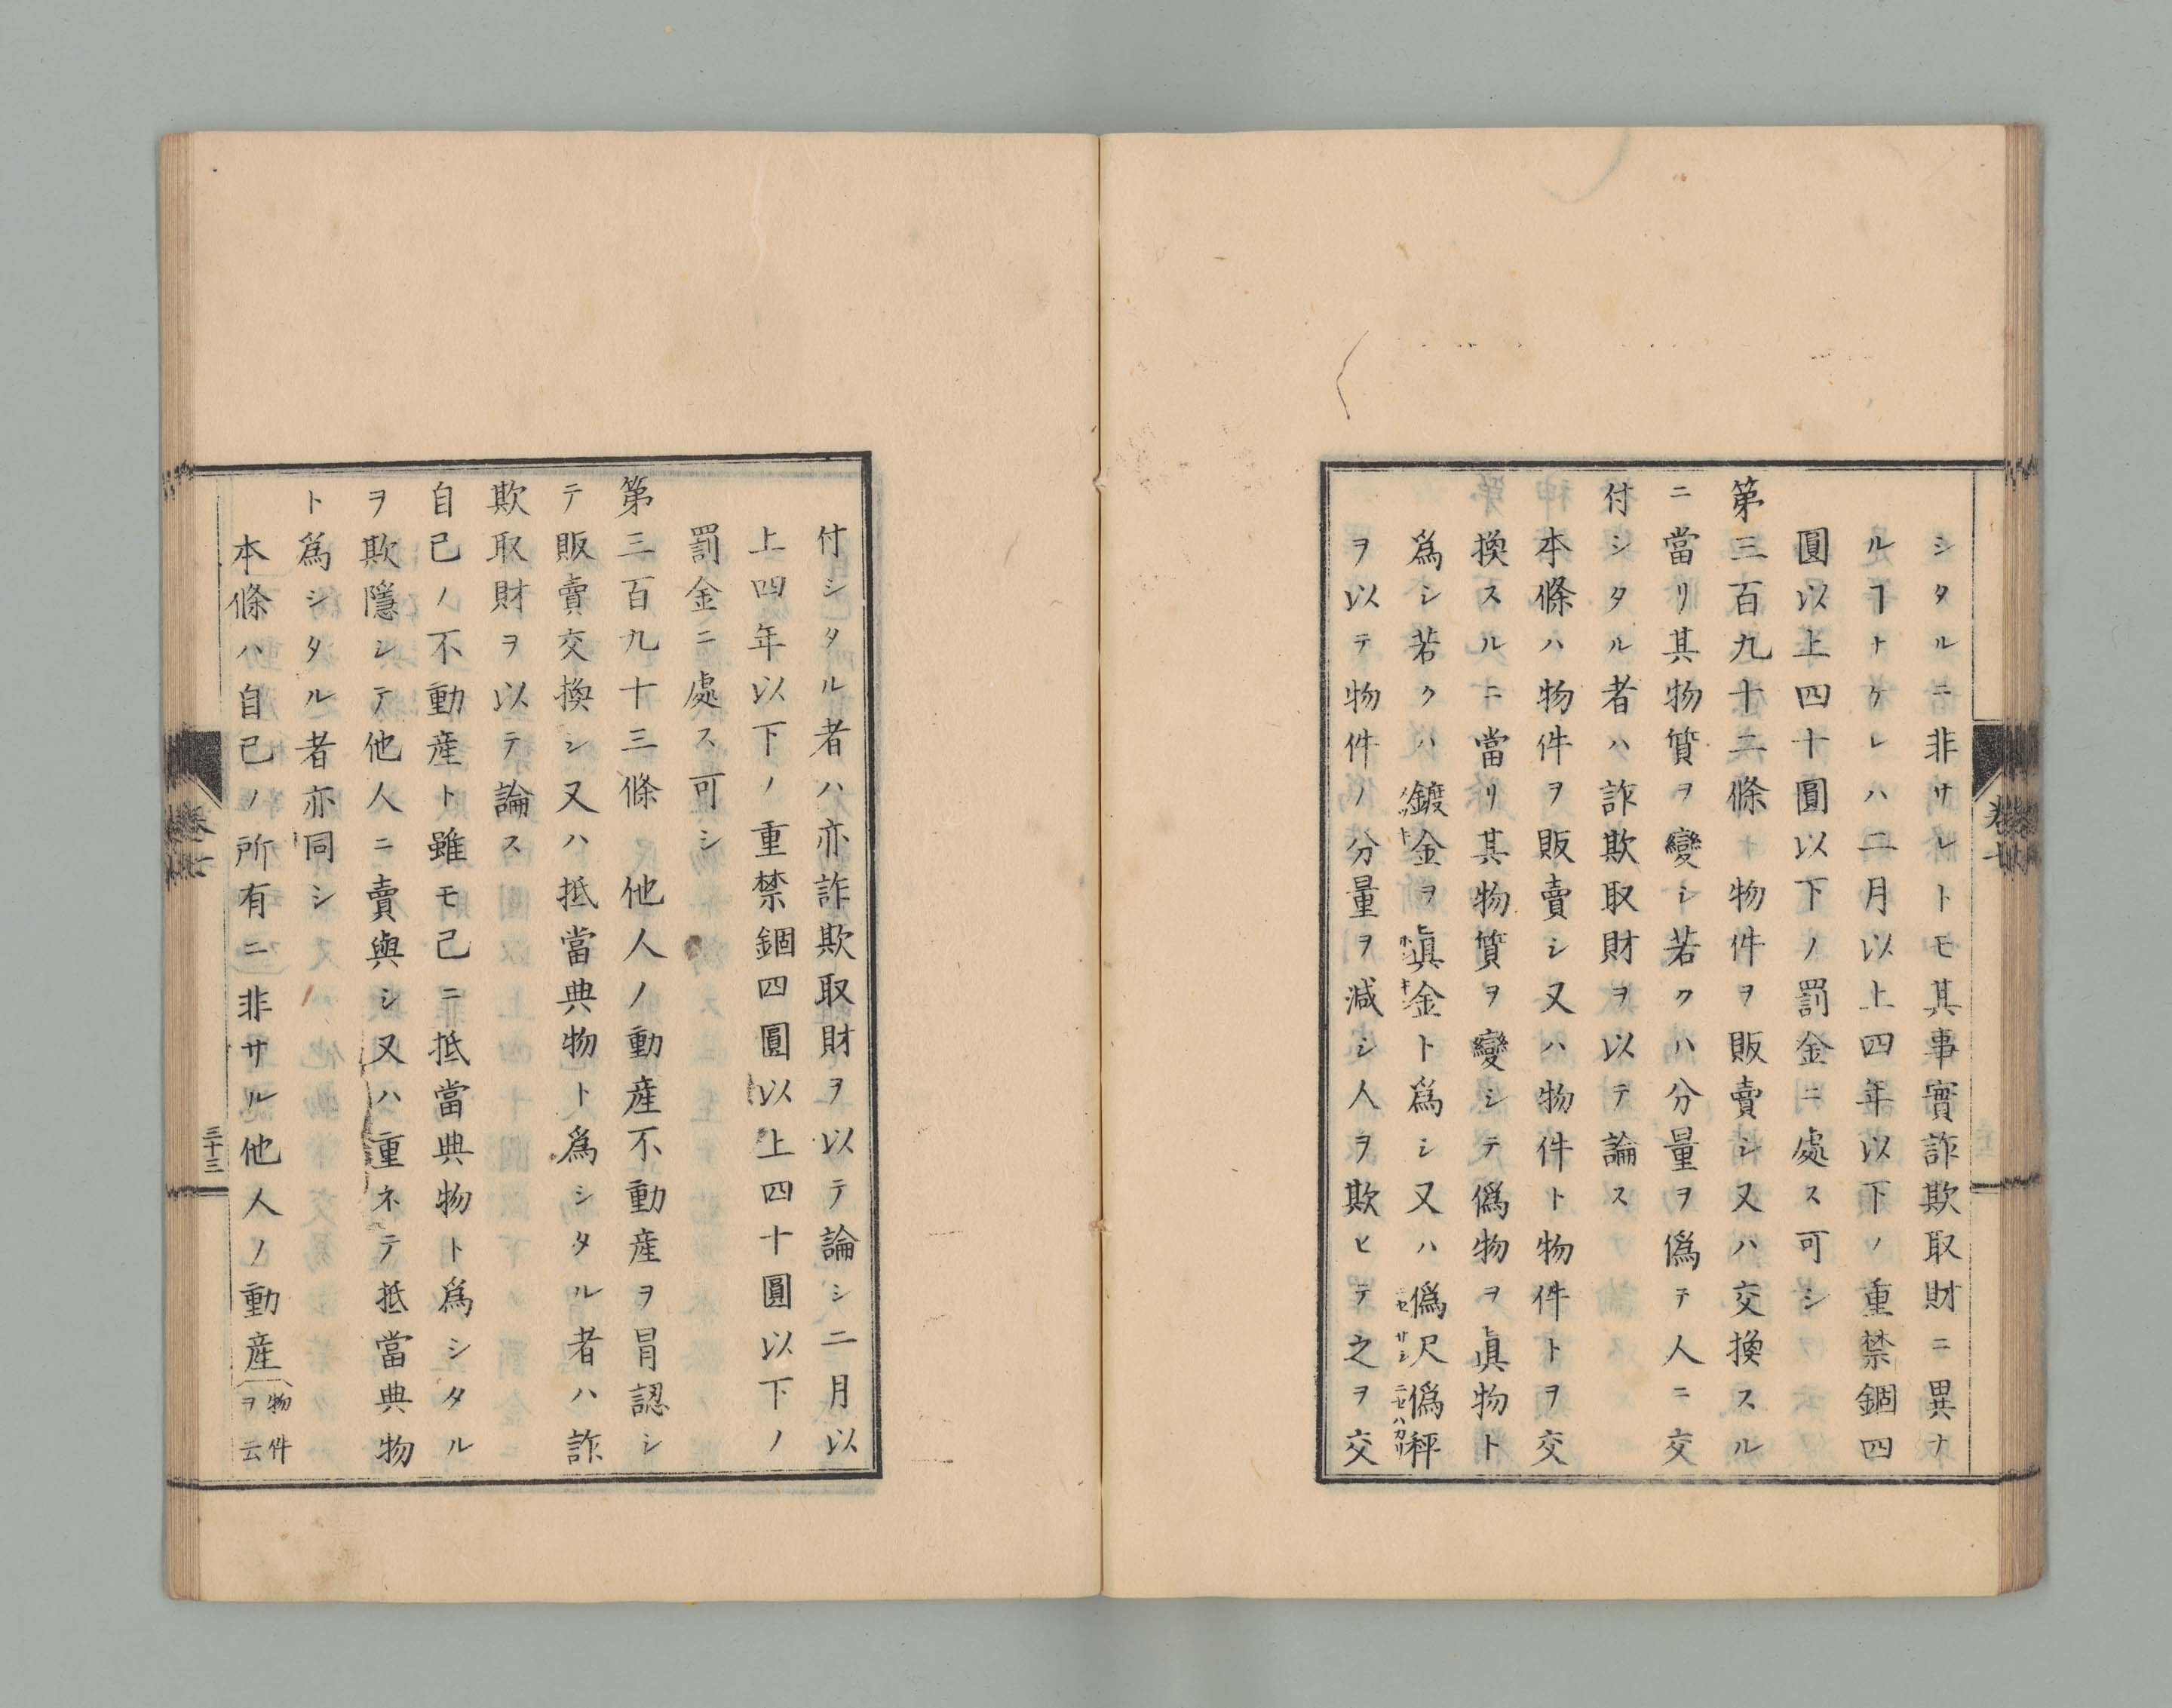 シタルニ非サレトモ其事實詐欺取財ニ異ナ
ルヿナケレハ二月以上四年以下ノ重禁錮四
圓以上四十圓以下ノ罰金ニ處ス可シ
第三百九十二條 物件ヲ販賣シ又ハ交換スル
ニ當リ其物質ヲ變シ若クハ分量ヲ僞テ人ニ交
付シタル者ハ詐欺取財ヲ以テ論ス
本條ハ物件ヲ販賣シ又ハ物件ト物件トヲ交
換スルニ當リ其物質ヲ變シテ僞物ヲ眞物ト
爲シ若クハ鍍金ヲ眞金ト爲シ又ハ僞尺僞秤
ヲ以テ物件ノ分量ヲ減シ人ヲ欺ヒテ之ヲ交
付シタル者ハ亦詐欺取財ヲ以テ論シ二月以
上四年以下ノ重禁錮四圓以上四十圓以下ノ
罰金ニ處ス可シ
第三百九十三條 他人ノ動産不動産ヲ冒認シ
テ販賣交換シ又ハ抵當典物ト爲シタル者ハ詐
欺取財ヲ以テ論ス
自己ノ不動産ト雖モ已ニ抵當典物ト爲シタル
ヲ欺隱シテ他人ニ賣與シ又ハ重ネテ抵當典物
ト爲シタル者亦同シ
本條ハ自己ノ所有ニ非サル他人ノ動産(物件ヲ云
三十三